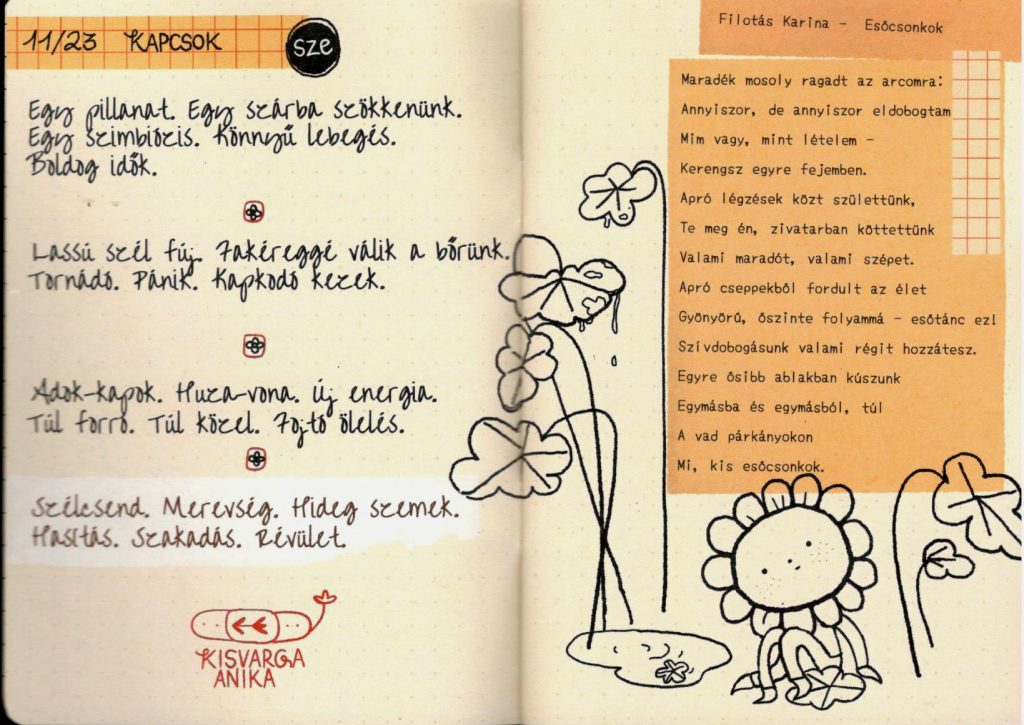 11/23 KAPCSOK
sze
Egy pillanat. Egy szárba szökkenünk.
Egy szimbiózis. Könnyű lebegés.
Boldog idők.
Lassú szél fúj. Fakéreggé válik a bőrünk.
Tornádó. Pánik. Kapkodó kezek.
Adok-kapok. Huza-vona. Új energia.
Túl forró. Túl közel. Fojtó ölelés.
Szélcsend. Merevség. Hideg szemek.
Hasítás. Szakadás. Révület.
KISVARGA
ANIKA
Filotás Karina - Esőcsonkok
Maradék mosoly ragadt az arcomra:
Annyiszor, de annyiszor eldobogtam
Mim vagy, mint lételem -
Kerengsz egyre fejemben.
Apró légzések közt születtünk,
Te meg én, zivatarban köttettünk
Valami maradót, valami szépet.
Apró cseppekből fordult az élet
Gyönyörű, őszinte folyammá - esőtánc ez!
Szívdobogásunk valami régit hozzátesz.
Egyre ősibb ablakban kúszunk
Egymásba és egymásból, túl
A vad párkányokon
Mi, kis esőcsonkok.